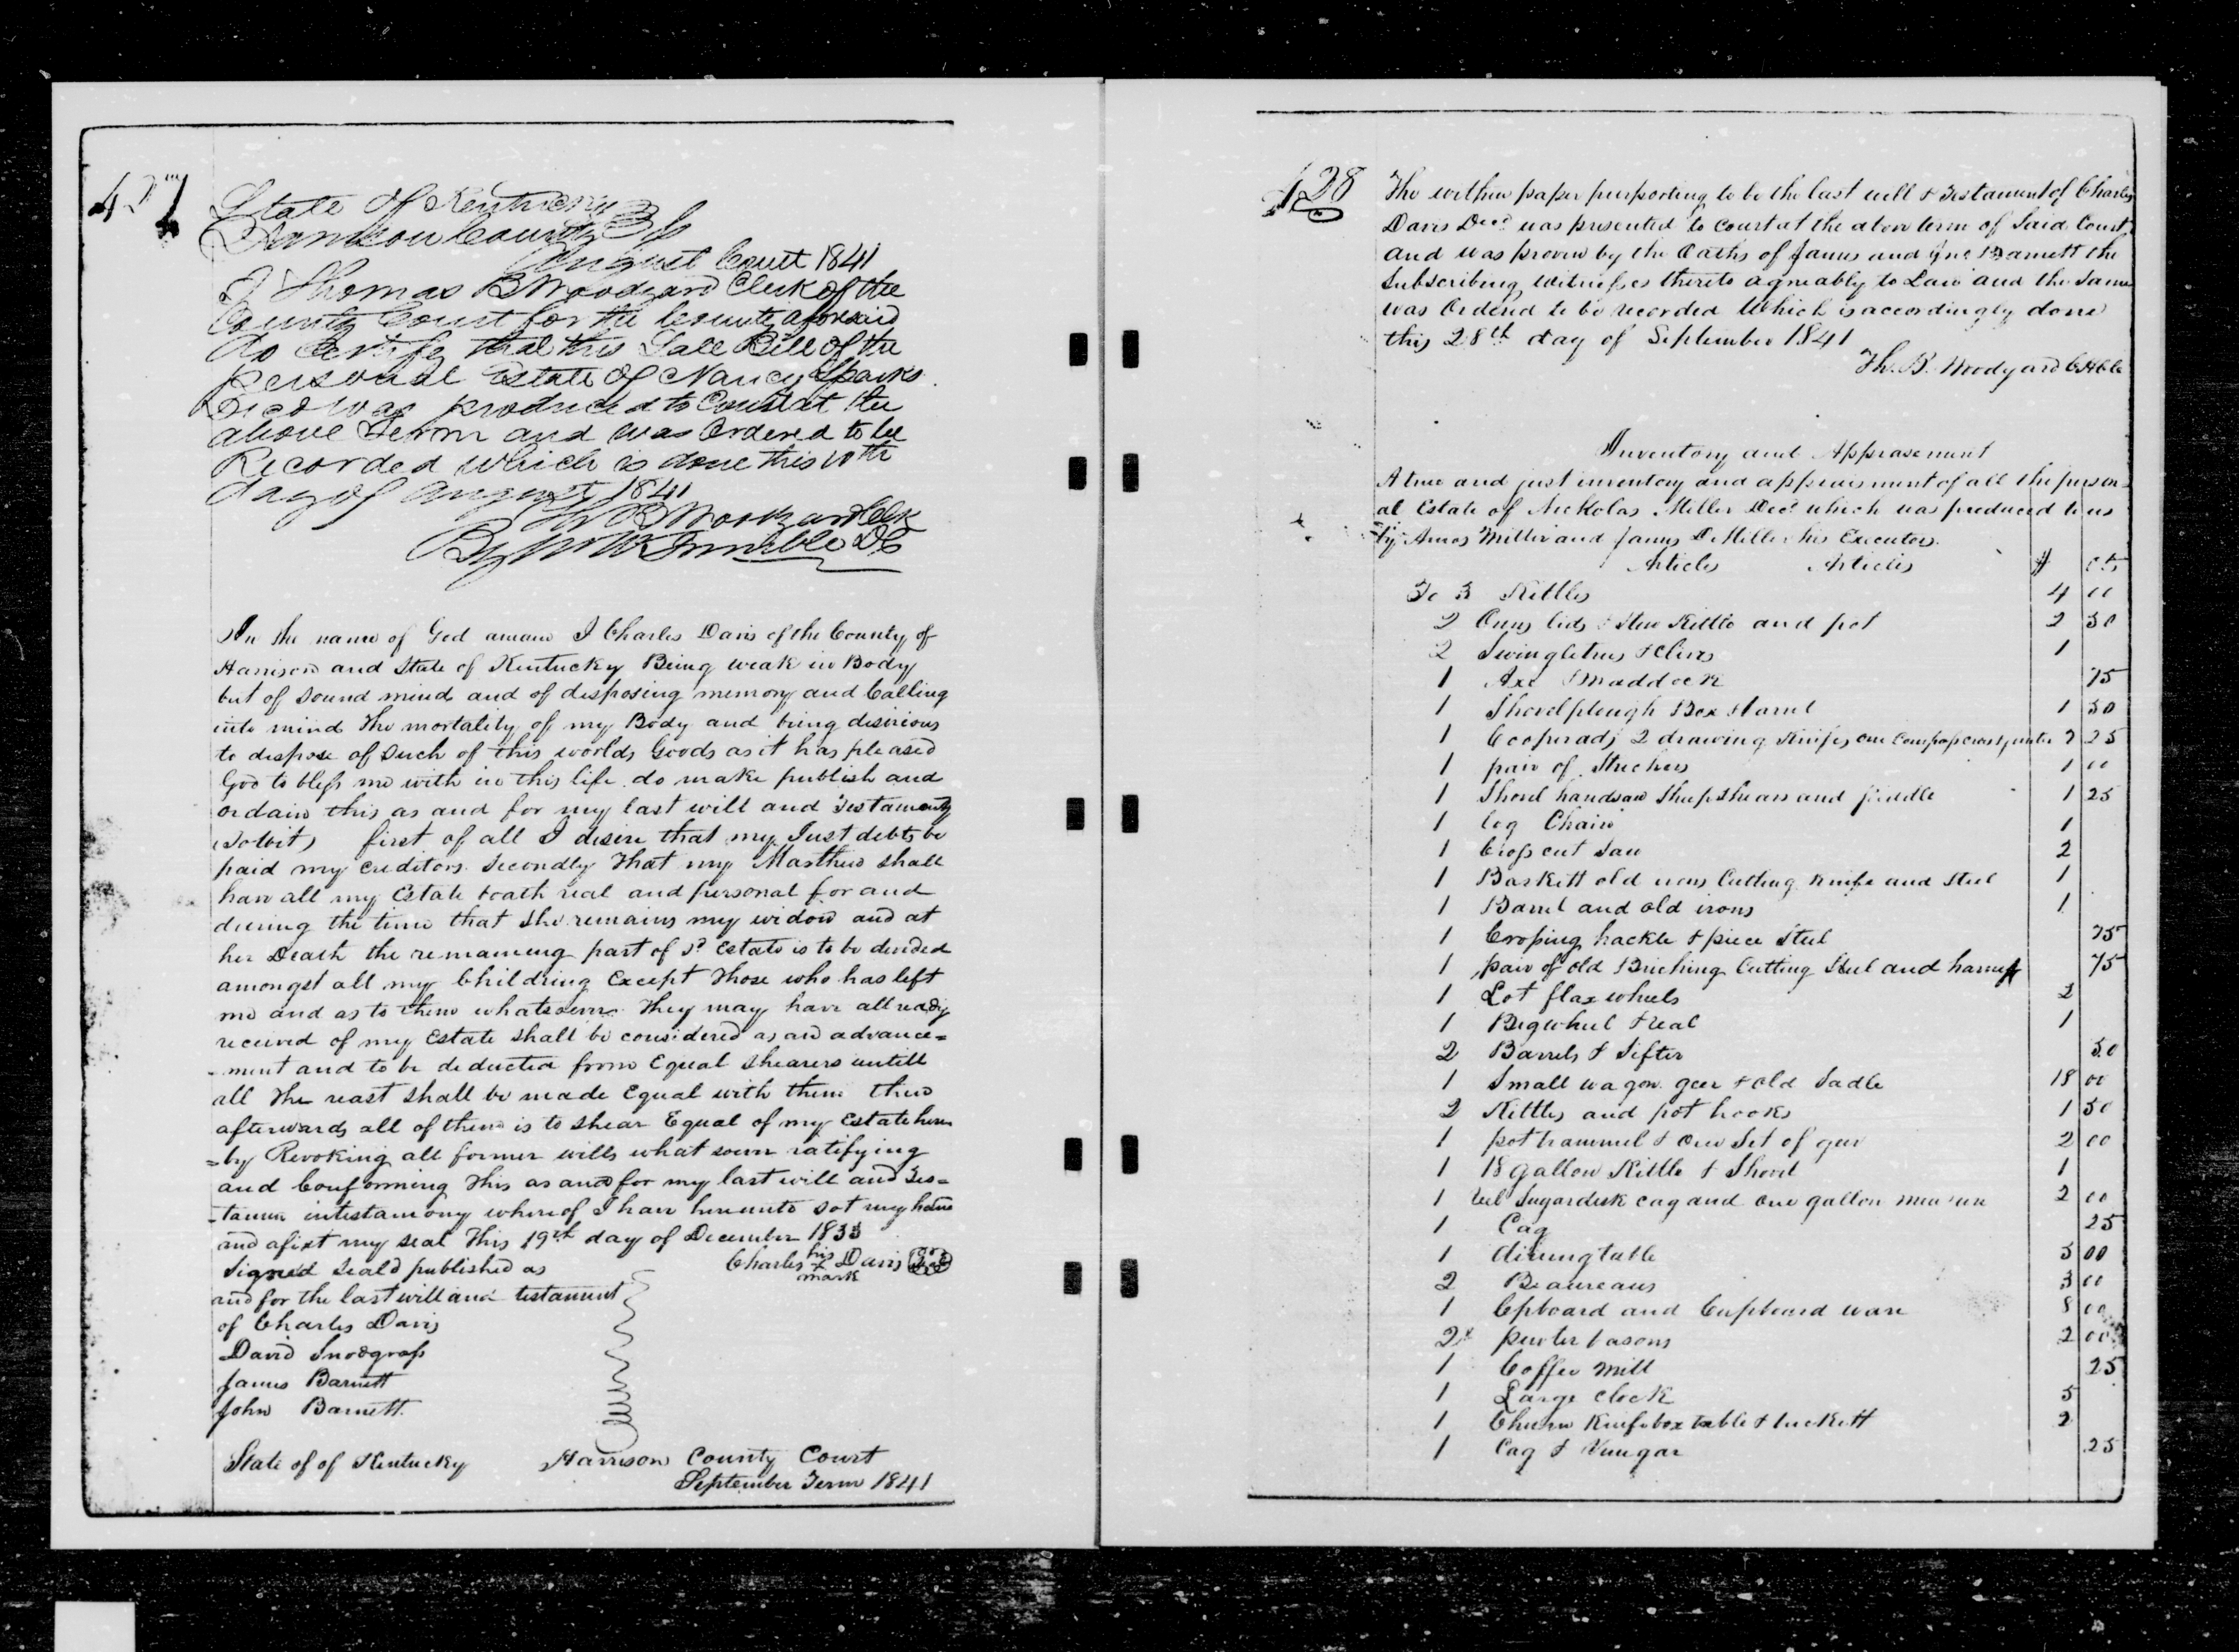 427
State of Kentucky
Harrison County Sct
August Court 1841
I Thomas B Woodyard Clerk of the
County Court for the County aforesaid
do Certify that this Sale Bill of the
personal Estate of Nancy Sparks
Decd was produced to Court at the
above Term and was Ordered to be
Recorded which is done this 10th
day of August 1841
Th B Woodyard Clk
By W W Trimble DC
In the name of God amane I Charles Davis of the County of
Harrison and State of Kentucky Being weak in Body
but of sound mind and of disposing memory and Calling
into mind the mortality of my Body and being desirious
to dispose of such of this worlds Goods as it has pleased
God to bless me with in this life do make publish and
ordain this as and for my last will and Testamenty
(Towit) first of all I desire that my Just debts be
paid my creditors. Secondly That my Marthew shall
have all my Estate boath real and personal for and
during the time that she remains my widow and at
her Death the remaining part of sd Estate is to be devided
amongst all my Childring Except Those who has left
me and as to them whatsoever They may have allready
received of my Estate shall be considered as an advance=
-ment and to be deducted from Equal shearers untill
all The reast shall be made Equal with them then
afterwards all of them is to shear Equal of my Estate here
=by Revoking all former wills what soever ratifying
and Conforming This as and for my last will and Tes=
-tamen intestamony whereof I have hereunto sot my hand
and afixt my seal This 19th day of December 1833
Signed Seald published as
Charles his x mark Davis Seal
and for the last will and testament
of Charles Davis
David Snodgrass
James Barnett
John Barnett.
State of of Kentucky Harrison County Court
September Term 1841
428
The within paper purporting to be the last will & Testament of Charles
Davis Decd was presented to court at the above term of Said Court
and was proven by the Oaths of James and Jno Barnett the
Subscribing witnesses thereto agreably to Law and the same
was Ordered to be recorded Which is accordingly done
this 28th day of September 1841
Th. B. Woodyard
Inventory and Apprasement
A true and just inventory and appraisment of all the person-
al Estate of Nickolas Miller Decd which was produced to us
by Amos Miller and James D Miller his Executors.
Articles Articles $ cts
To 3 Kettles 4 00
2 Ovens lids & Stew Kettle and pot 2 50
2 Swingletrees & clives 1
1 Axe & maddock 75
1 Shovelplough Box & barrel 1 50
1 Cooperadz 2 drawing Knifes one Compass 2 25
1 pair of Strechers 1 00
1 Shovel handsaw Sheepshears and 1 25
1 log Chain 1
1 Cross cut Saw 2
1 Baskett old irons Cutting Knife and Steel 1
1 Barrel and old irons 1
1 Croping hackle & piece Steel 75
1 pair of old Briching Cutting Steel and harness 75
1 Lot flax wheels 2
1 Bigwheel & real 1
2 Barrels & Sifter 50
1 Small wagon geer & old Sadle 18 00
2 Kittles and pot hooks 1 50
1 pot trammel & One Set of geer 2 00
1 18 gallon Kittle & Shovel 1
1 Sugardesk cag and one gallon measure 2 00
1 Cag 25
1 diningtable 5 00
2 Beaureaus 3 00
1 Cpboard and Cupboard ware 8 00
2 pewter basons 2 00
1 Coffee Mill 25
1 Large Clock 5
1 Churn Knifebox table & buckett 2
1 Cag & Vinegar 25